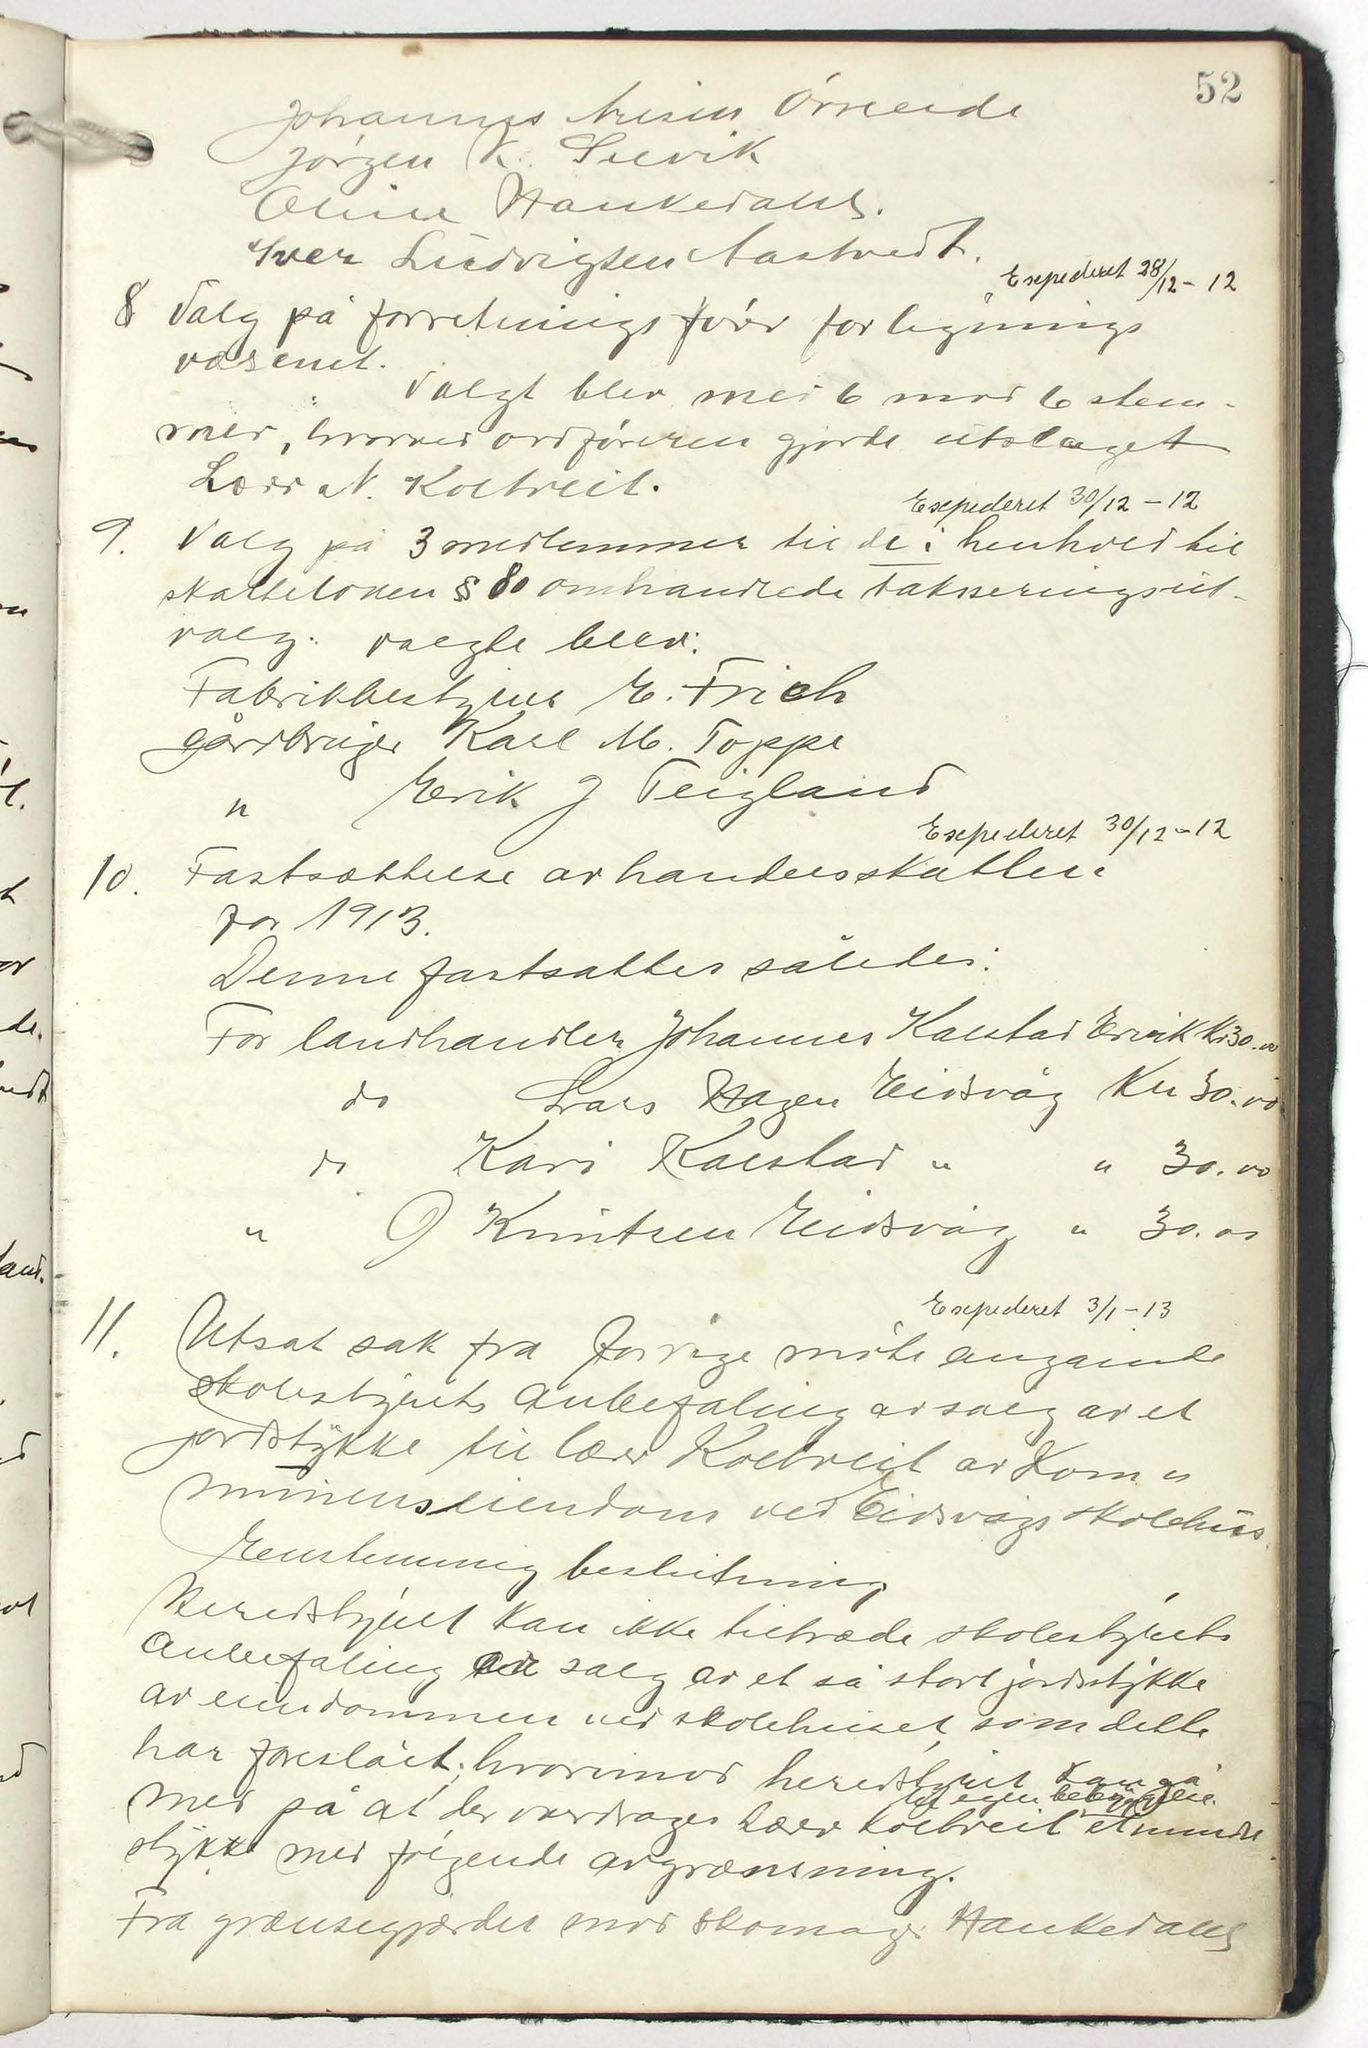 52
Johannes Ørreide
Jörgen K. Selvik
Oline Haukedahl.
Iver Ludvigsen Aastvedt.
Expederet 28/12-12
8 Valg på forretningsförer for lignings
væsenet.
Valgt blev med 6 mod 6 stem-
mer, hvorved ordföreren gjorde utslaget
Lærer N. Koltveit.
Expederet 30/12-12
9. Valg på 3 medlemmer til de i henhold til
skatteloven § 80 omhandlede takseringsut-
valg. valgte blev:
Fabrikbestyrer E. Frich
gårdbruger Karl M. Toppe
" Erik J Teigland
Expederet 30/12-12
10. Fastsættelse av handelsskatten
for 1913.
Denne fastsattes således:
For landhandler Johannes Kalstad Ervik Kr 30.00
do Lars Hagen Eidsvåg Kr 30.00
do Kari Kalstad " " 30.00
" O Knutsen Eidsvåg " 30.00
Expederet 3/1-13
11. Utsat sak fra forrige möte angående
skolestyrets anbefaling av salg av et
jordstykke til lærer Koltveit av Kom"
munens eiendom ved Eidsvågs skolehus.
Enstemmig beslutning
Heredstyret kan ikke tiltræde skolestyrets
anbefaling av salg av et så stort jordstykke
av eiendommen ved skolehuset, som dette
har foreslået; hvorimod heredstyret kan gå
til egen bebyggelse
med på at der overdrages Lærer Koltveit et mindre
stykke med følgende avgrænsning.
Fra grænsegjærdet mod skomager Haukedahls